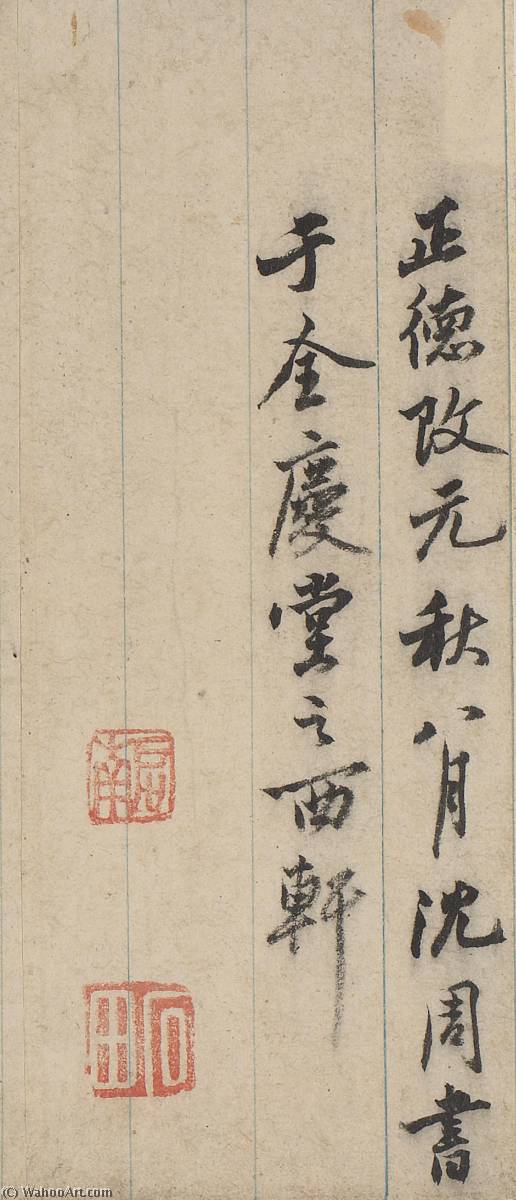 正德改元秋八月沈周書
于全慶堂之西軒
啟南
石田
(c) WahooArt.com